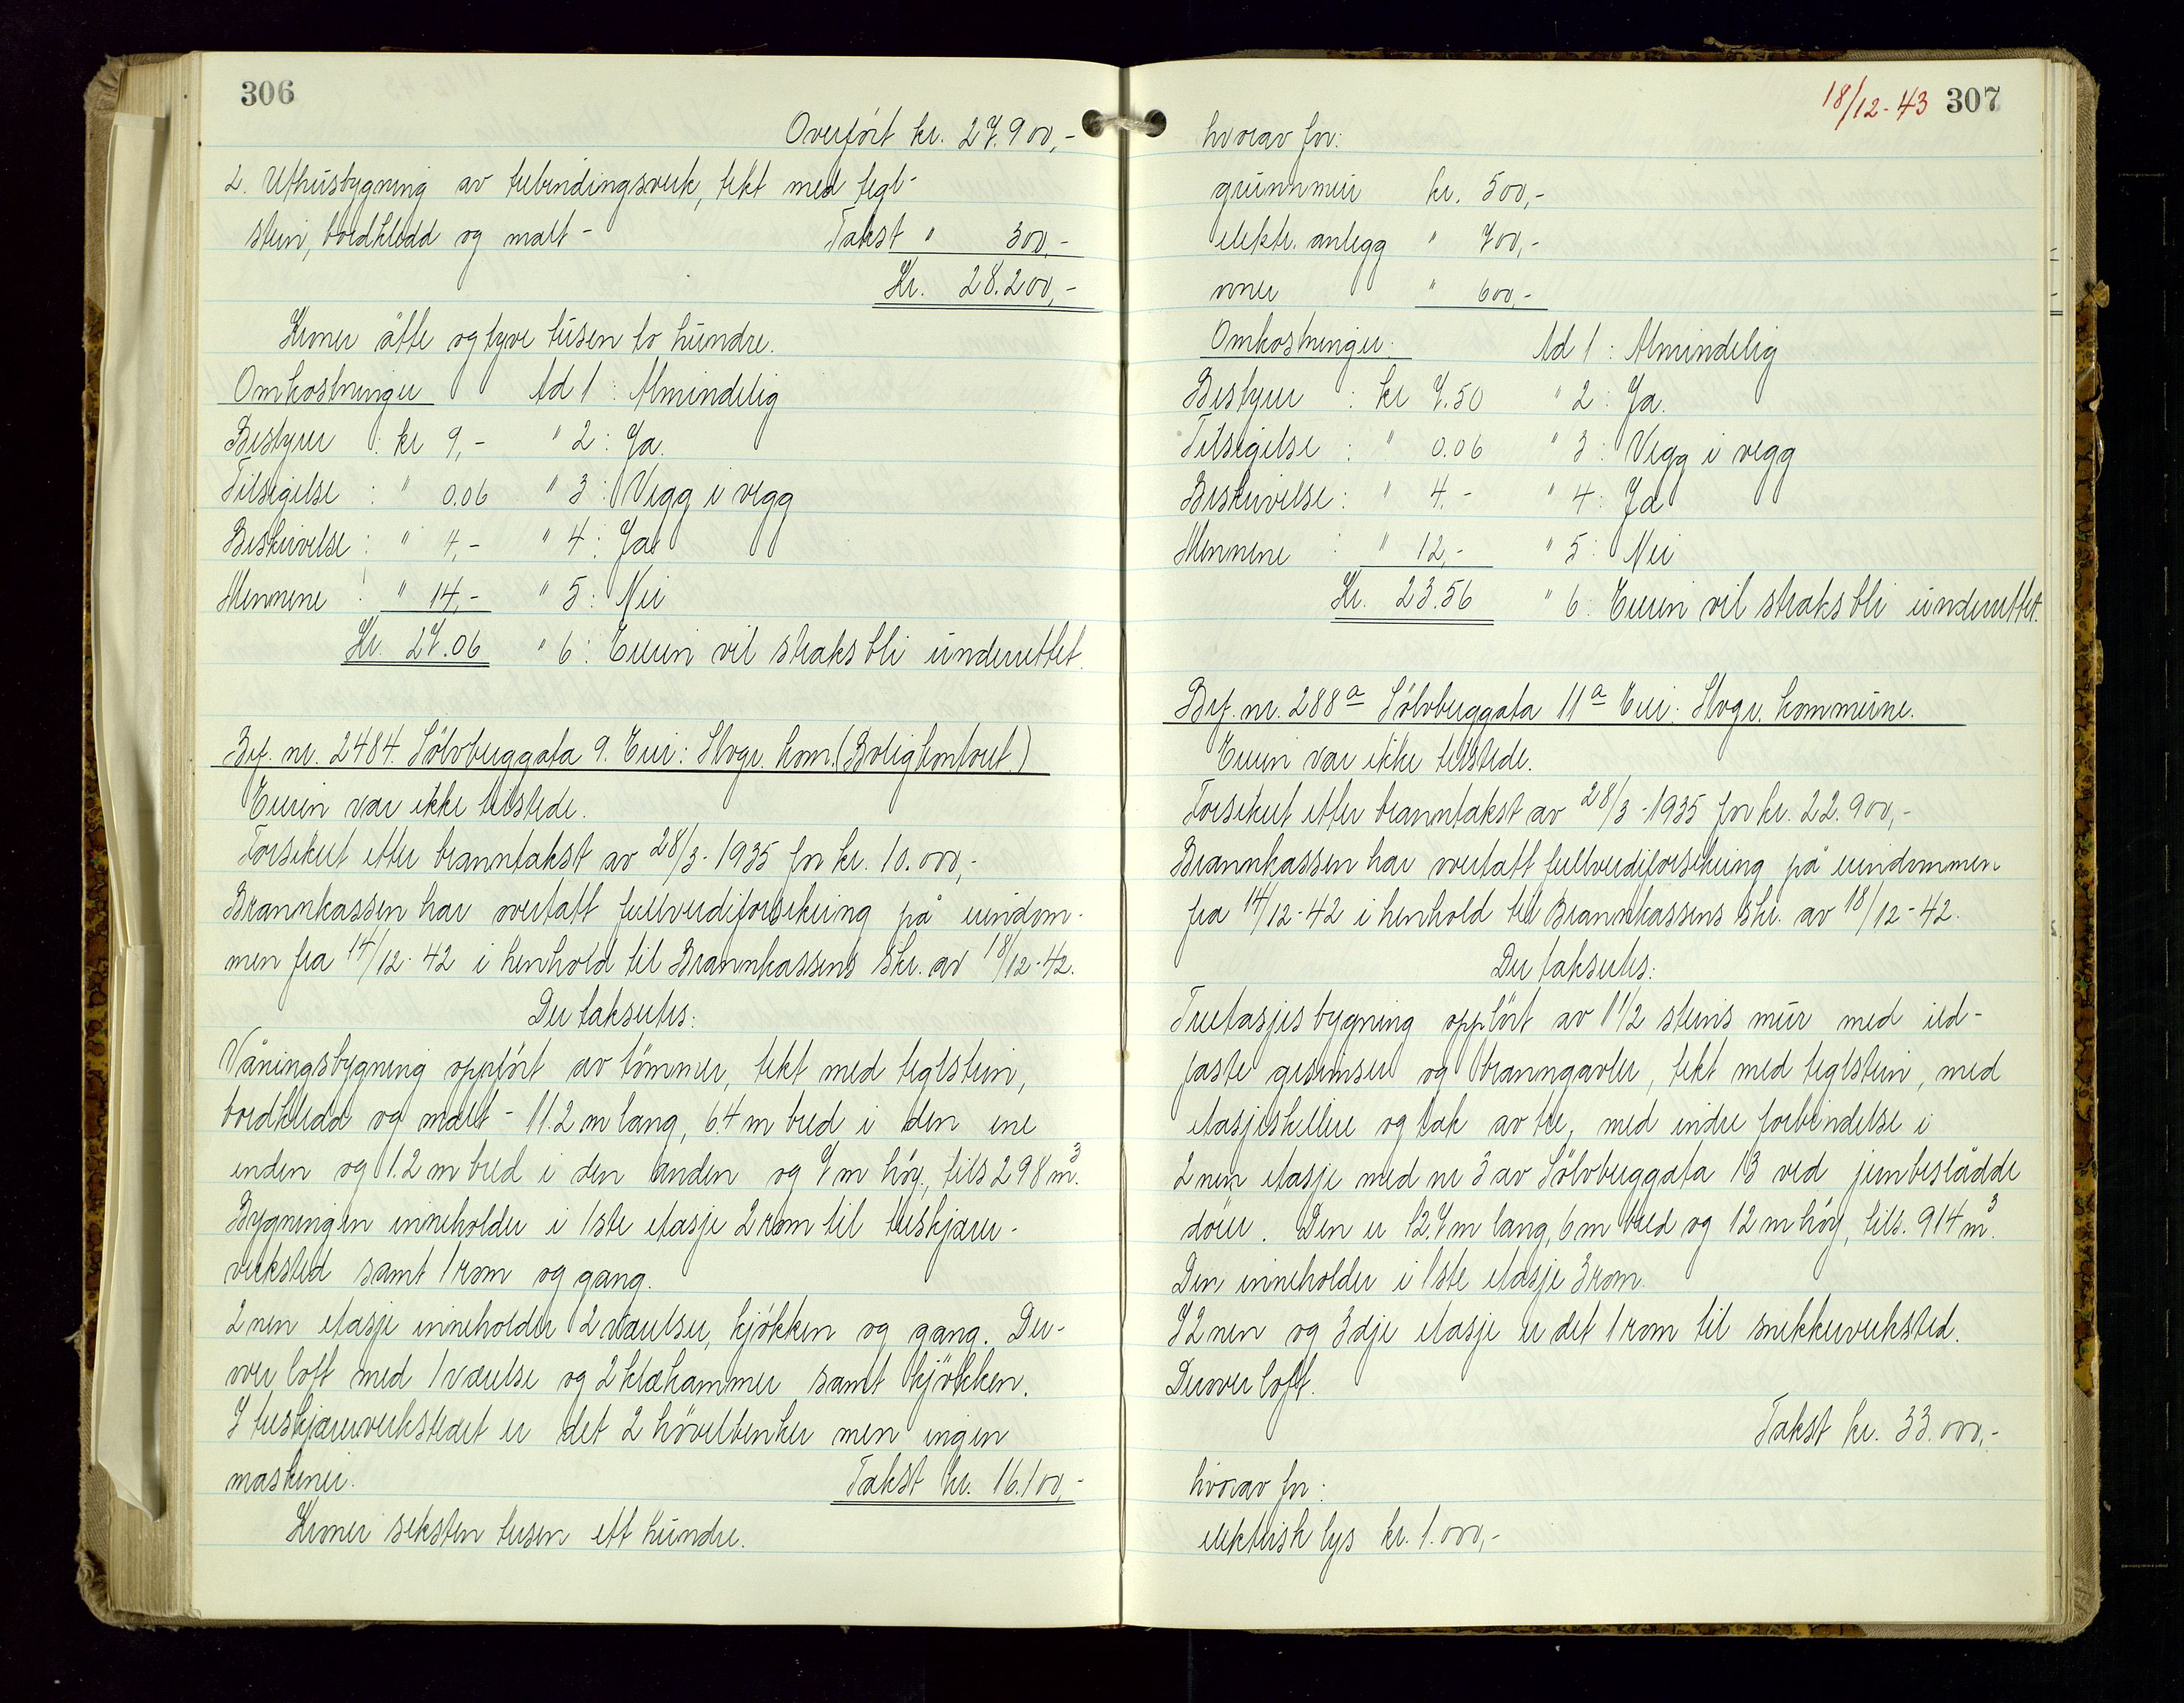 306
Overført kr. 27.900,-
2. Uthusbygning av trebindingsverk, tekt med tegl-
stein, bordkledd og malt - Takst " 300,-
Kr. 28.200,-
Kroner åtte og tyve tusen to hundre.
Omkostninger Ad 1 : Almindelig
Bestyrer : kr 9,- " 2 : Ja.
Tilsigelse : " 0.06 " 3 : Vegg i vegg
Beskrivelse : " 4,- " 4 : Ja
Mennene : " 14,- " 5 : Nei
Kr. 27.06 " 6 : Eieren vil straks bli underrettet.
Brf. nr. 2484. Sölvberggata 9. Eier: Stvgr. kom. (Boligkontoret)
Eieren var ikke tilstede.
Forsikret etter branntakst av 28/3-1935 for kr. 10.000,-
Brannkassen har overtatt fullverdiforsikring på eiendom-
men fra 14/12-42 i henhold til Brannkassens skr. av 18/12-42.
Der takseres:
Våningsbygning oppført av tömmer, tekt med teglstein,
bordkledd og malt - 11.2 m lang, 6.4 m bred i den ene
enden og 1.2 m bred i den anden og 7 m höy, tils 298 m³.
Bygningen inneholder i 1ste etasje 2 rom til treskjærer-
verksted samt 1 rom og gang.
2nen etasje inneholder 2 værelser, kjøkken og gang. Der-
over loft med 1 værelse og 2 klækammer samt kjøkken.
I treskjærerverkstedet er det 2 hövelbenker men ingen
maskiner. Takst kr. 16.100,-
Kroner seksten tusen ett hundre.
18/12-43 307
hvorav for:
grunnmur kr. 500,-
elektr. anlegg " 700,-
ovner " 600,-
Omkostninger: Ad 1 : Almindelig
Bestyrer : kr 7.50 " 2 : Ja.
Tilsigelse : " 0.06 " 3 : Vegg i vegg
Beskrivelse : " 4.- " 4 : Ja
Mennene : " 12,- " 5 : Nei
Kr. 23.56 " 6 : Eieren vil straks bli underrettet.
Brf. nr. 288a Sölvberggata 11a Eier: Stvgr. kommune.
Eieren var ikke tilstede.
Forsikret etter branntakst av 28/3-1935 for kr. 22.900,-
Brannkassen har overtatt fullverdiforsikring på eiendommen
fra 14/12-42 i henhold til Brannkassens skr. av 18/12-42.
Der takseres:
Treetasjesbygning oppfört av 1 1/2 steins mur med ild-
faste gesimser og branngavler, tekt med teglstein, med
etasjeskillere og tak av tre, med indre forbindelse i
2nen etasje med nr 3 av Sölvberggata 13 ved jernbeslådde
dörer. Den er 12.7 m lang, 6 m bred og 12 m höy, tils. 914 m³.
Den inneholder i 1ste etasje 3 rom.
I 2nen og 3dje etasje er det 1 rom til snekkerverksted.
Derover loft.
Takst kr. 33.000,-
hvorav for:
elektrisk lys kr. 1.000,-